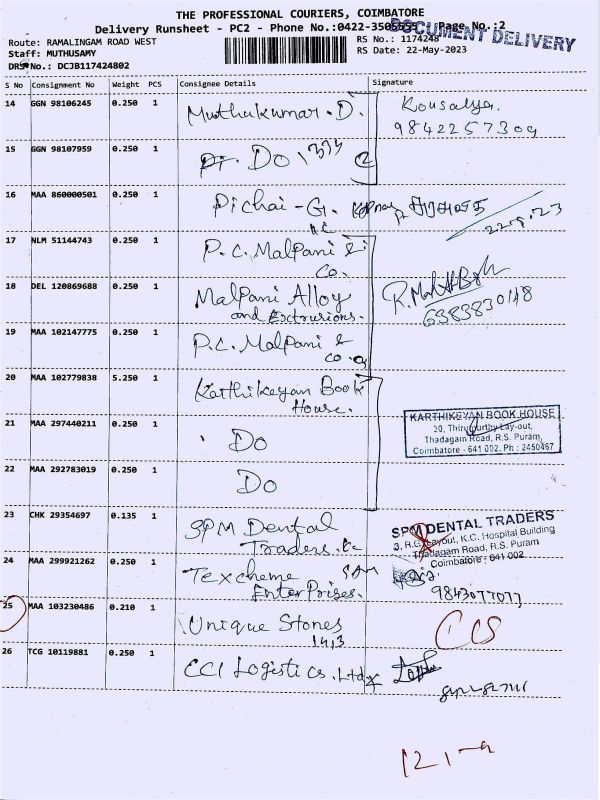 THE PROFESSIONAL COURIERS, COIMBATORE
Delivery Runsheet - PC2 - Phone No.:0422-3505555 Page No.:2
DOCUMENT DELIVERY
Route: RAMALINGAM ROAD WEST RS No.: 1174248
Staff: MUTHUSAMY RS Date: 22-May-2023
DRS No.: DCJB117424802
S No Consignment No Weight PCS Consignee Details Signature
14 GGN 98106245 0.250 1 Muthukumar. D. Kousalya
9842257309
15 GGN 98107959 0.250 1 Do
16 MAA 860000501 0.250 1 Pichai - G.
17 NLM 51144743 0.250 1 P. C. Malpani &
Co.
18 DEL 120869688 0.250 1 Malpani Alloy
and Extrusions.
6383830148
19 MAA 102147775 0.250 1 P.C. Malpani &
Co.
20 MAA 102779838 5.250 1 Karthikeyan Book
House.
21 MAA 297440211 0.250 1 Do
KARTHIKEYAN BOOK HOUSE
30, Thirumurthy Lay-out,
Thadagam Road, R.S. Puram,
Coimbatore - 641 002. Ph : 2450467
22 MAA 292783019 0.250 1 Do
23 CHK 29354697 0.135 1 SPM Dental
Traders.
SPM DENTAL TRADERS
3, R.G. Layout, K.C. Hospital Building
Thadagam Road, R.S. Puram
Coimbatore - 641 002
24 MAA 299921262 0.250 1 Texcheme
Enterprises.
9843077077
25 MAA 103230486 0.210 1 Unique Stones
26 TCG 10119881 0.250 1 CCI Logistics. Ltd